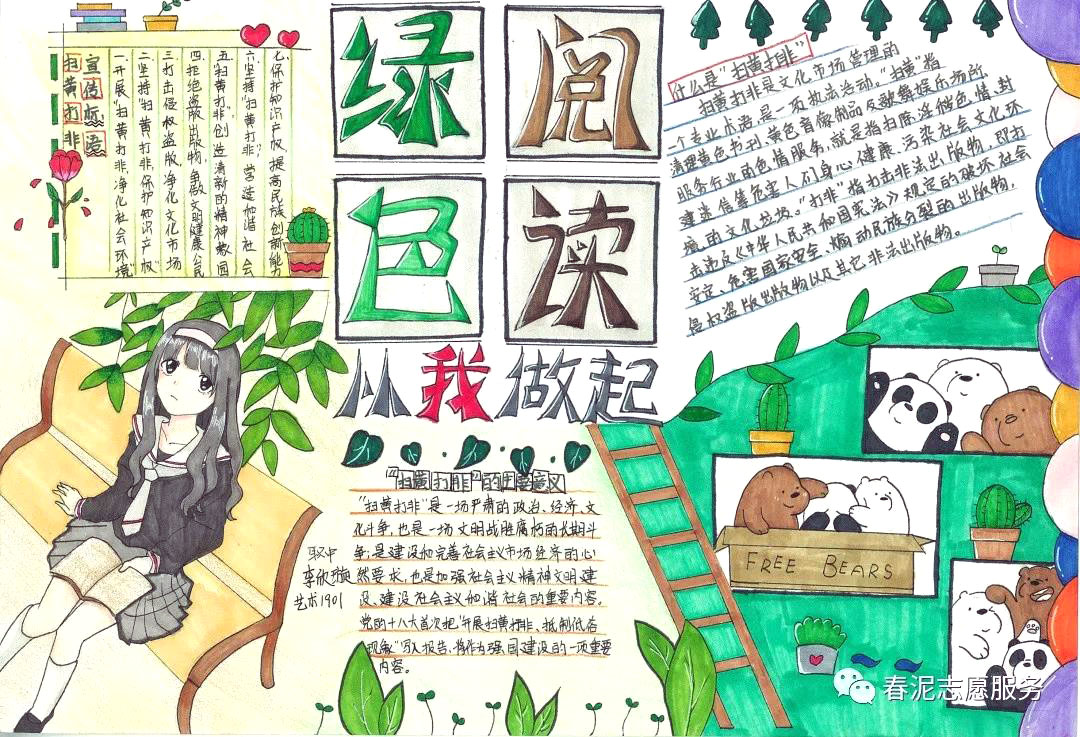 扫黄打非
宣传标语
一、开展"扫黄打非,净化社会环境"
二、坚持"扫黄打非,保护知识产权"
三、打击侵权盗版,净化文化市场
四、拒绝盗版出版物,争做文明健康公民
五、"扫黄打非"创造清新的精神家园
六、坚持"扫黄打非",营造和谐社会
七、保护知识产权,提高民族创新能力
绿 阅
色 读
从我做起
什么是"扫黄打非"
扫黄打非是文化市场管理的
一个专业术语,是一项执法活动。"扫黄"指
清理黄色书刊、黄色音像制品及歌舞娱乐场所、
服务行业的色情服务,就是指扫除淫秽色情、封
建迷信等危害人们身心健康、污染社会文化环
境的文化垃圾。"打非"指打击非法出版物,即打
击违反《中华人民共和国宪法》规定的破坏社会
安定、危害国家安全、煽动民族分裂的出版物,
侵权盗版出版物以及其它非法出版物。
"扫黄打非"的重要意义
"扫黄打非"是一场严肃的政治、经济、文
化斗争,也是一场文明战胜腐朽的长期斗
争;是建设和完善社会主义市场经济的必
然要求,也是加强社会主义精神文明建
设、建设社会主义和谐社会的重要内容。
党的十八大首次把"开展扫黄打非、抵制低俗
现象"写入报告,将作为强国建设的一项重要
内容。
职中
艺术1901
FREE BEARS
春泥志愿服务